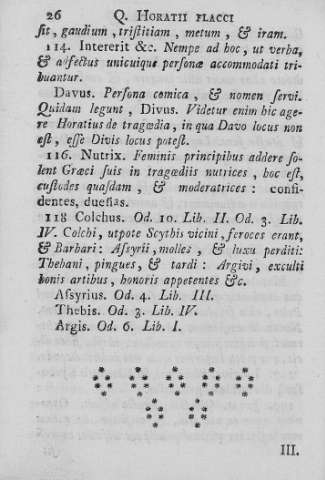 26 Q. HORATII FLACCI
ſit, gaudium, triſtitiam, metum, & iram.
114. Intererit &c. Nempe ad hoc, ut verba,
& affectus unicuique perſonæ accommodati tri-
buantur.
Davus. Perſona comica, & nomen ſervi.
Quidam legunt, Divus. Videtur enim hic age-
re Horatius de tragœdia, in qua Davo locus non
eſt, eſſe Divis locus poteſt.
116. Nutrix. Feminis principibus addere ſo-
lent Græci ſuis in tragœdiis nutrices, hoc eſt,
cuſtodes quaſdam, & moderatrices: confi-
dentes, dueñas.
118 Colchus. Od. 10. Lib. II. Od. 3. Lib.
IV. Colchi, utpote Scythis vicini, feroces erant,
& Barbari: Aſſyrii, molles, & luxu perditi:
Thebani, pingues, & tardi: Argivi, exculti
bonis artibus, honoris appetentes &c.
Aſſyrius. Od. 4. Lib. III.
Thebis. Od. 3. Lib. IV.
Argis. Od. 6. Lib. I.
III.